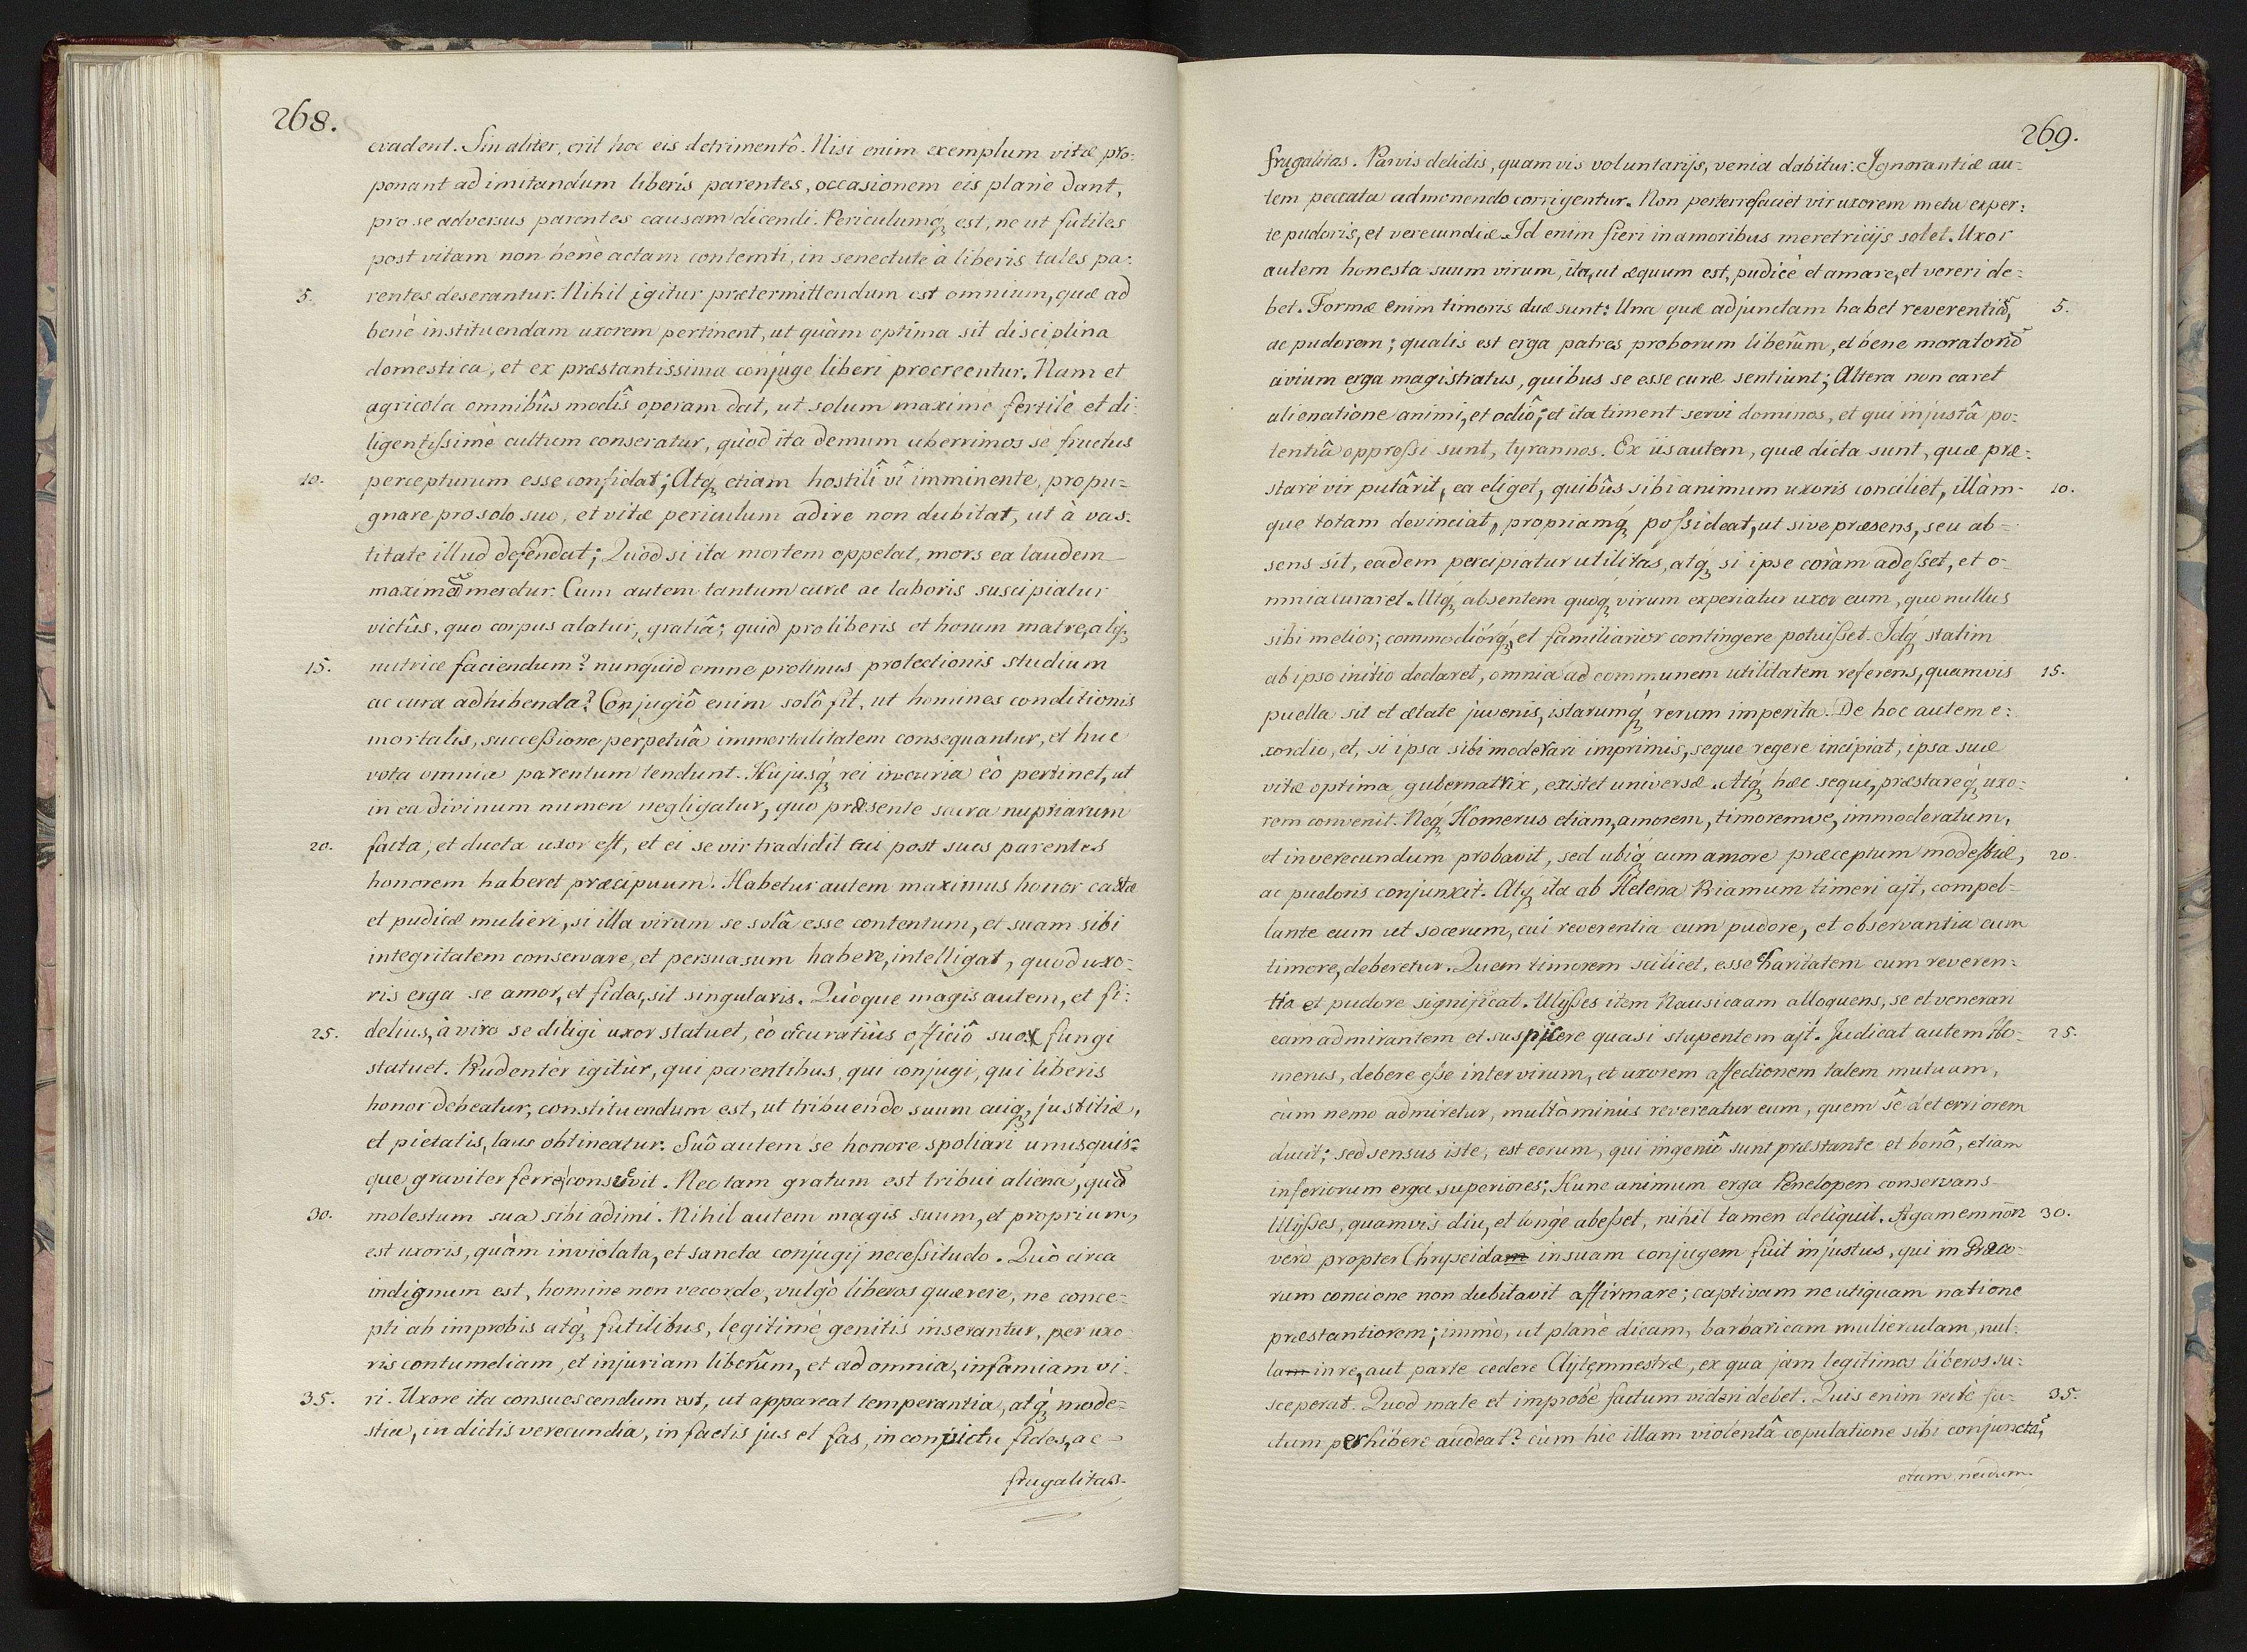 268.
evadent. Sin aliter, erit hoc eis detrimentô. Nisi enim exemplum vitæ pro:
ponant ad imitandum liberis parentes, occasionem eis planè dant,
pro se adversus parentes causam dicendi. Periculumq̃ est, ne ut futiles
post vitam non benè actam contemti, in senectute à liberis tales pa:
5. rentes deserantur. Nihil igitur prætermittendum est omnium, quæ ad
benè instituendam uxorem pertinent, ut quàm optima sit disciplina
domestica, et ex præstantissima conjuge liberi procreentur. Nam et
agricola omnibûs modîs operam dat, ut solum maximè fertilè et di:
ligentissimè cultum conseratur, quòd ita demum uberrimos se fructus
10. percepturum esse confidat; Atq̃ etiam hostilî vî imminente, propu=
gnare pro solo suo, et vitæ periculum adire non dubitat, ut à vas:
titate illud defendat; Quòd si ita mortem oppetat, mors ea laudem
maximã meretur. Cum autem tantum curæ ac laboris suscipiatur
victûs, quo corpus alatur, gratiâ; quid pro liberis et horum matre, atq̃
15. nutrice faciendum? nunquid omne protinus protectionis studium
ac cura adhibenda? Conjugiô enim solô fit, ut homines conditionis
mortalis, successione perpetuâ immortalitatem consequantur, et huc
vota omnia parentum tendunt. Hujusq̃ rei incuria eò pertinet, ut
in ea divinum numen negligatur, quo præsente sacra nuptiarum
20. facta, et ducta uxor est, et ei se vir tradidit cui post suos parentes
honorem haberet præcipuum. Habetur autem maximus honor castæ
et pudicæ mulieri, si illa virum se solâ esse contentum, et suam sibi
integritatem conservare, et persuasum habere, intelligat, quod uxo:
ris erga se amor, et fides, sit singularis. Quòque magis autem, et fi:
25. delius, à viro se diligi uxor statuet, eò accuratiùs officiô suo fungi
statuet. Prudentèr igitùr, qui parentibus, qui conjugi, qui liberis
honor debeatur, constituendum est, ut tribuendo suum cuiq̃, justitiæ,
et pietatis, laus obtineatur. Suô autem se honore spoliari unusquis=
que graviter ferre consuevit. Nec tam gratum est tribui aliena, quã
30. molestum sua sibi adimi. Nihil autem magis suum, et proprium,
est uxoris, quàm inviolata, et sancta conjugij necessitudo. Quò circa
indignum est, homine non vecorde, vulgò liberos quærere, ne conce=
pti ab improbis atq̃ futilibus, legitimè genitis inserantur, per uxo
ris contumeliam, et injuriam liberûm, et ad omnia, infamiam vi:
35. ri. Uxore ita consuescendum est, ut appareat temperantia, atq̃ mode=
stia, in dictis verecundia, in factis jus et fas, in convictu fides, ac =
frugalitas.
269.
frugalitas. Parvis delictis, quamvis voluntarijs, venia dabitur. Ignorantiæ au=
tem peccata admonendo corrigentur. Non perterrefaciet vir uxorem metu exper:
te pudoris, et verecundiæ. Id enim fieri in amoribus meretricijs solet. Uxor
autem honesta suum virum, ita, ut æquum est, pudicè et amare, et vereri de:
bet. Formæ enim timoris duæ sunt: Una quæ adjunctam habet reverentiã, 5.
ac pudorem; qualis est erga patres proborum liberûm, et bene moratorũ
civium erga magistratus, quibus se esse curæ sentiunt; Altera non caret
alienatione animi, et odiô; et ita timent servi dominos, et qui injustâ po:
tentiâ oppressi sunt, tyrannos. Ex iis autem, quæ dicta sunt, quæ præ:
stare vir putârit, ea eliget, quibûs sibi animum uxoris conciliet, illàm- 10.
que totam devinciat, propriamq̃ possideat, ut sive præsens, seu ab=
sens sit, eadem percipiatur utilitas, atq̃ si ipse coràm adesset, et o-
mnia curaret. Utq̃ absentem quoq̃ virum experiatur uxor eum, quo nullus
sibi melior; commodiórq̃, et familiarior contingere potuisset. Idq̃ statim
ab ipso initio declaret, omnia ad communem utilitatem referens, quamvis 15.
puella sit et ætate juvenis, istarumq̃ rerum imperita. De hoc autem e:
xordio, et, si ipsa sibi moderari imprimis, seque regere incipiat, ipsa suæ
vitæ optima gubernatrix, existet universæ. Atq̃ hæc sequi, præstareq̃ uxo:
rem convenit. Neq̃ Homerus etiam, amorem, timoremve, immoderatum,
et inverecundum probavit, sed ubiq̃ cum amore præceptum modestiæ, 20.
ac pudoris conjunxit. Atq̃ ita ab Helena Priamum timeri ajt, compel=
lante eum ut socerum, cui reverentia cum pudore, et observantia cum
timore, deberetur. Quem timorem scilicet, esse charitatem cum reveren=
tia et pudore significat. Ulysses item Nausicaam alloquens, se et venerari
eam admirantem et suspicere quasi stupentem ajt. Judicat autem Ho= 25.
merus, debere esse inter virum, et uxorem affectionem talem mutuam,
cùm nemo admiretur, multò minùs revereatur eum, quem sê deterriorem
ducit; sed sensus iste, est eorum, qui ingeniô sunt præstante et bonô, etiam
inferiorum erga superiores; Hunc animum erga Penelopen conservans
Ulysses, quamvis diu, et longè abesset, nihil tamen deliquit. Agamemnon 30.
verò propter Chryseidam in suam conjugem fuit injustus, qui in Græco=
rum concione non dubitavit affirmare; captivam neutiquam natione
præstantiorem; immò, ut planè dicam, barbaricam mulierculam, nul:
lam in re, aut parte cedere Clytemnestræ, ex qua jam legitimos liberos su:
sceperat. Quod male et improbè factum videri debet. Quis enim rectè fa= 35.
ctum perhibere audeat? cùm hic illam violentâ copulatione sibi conjunctã,